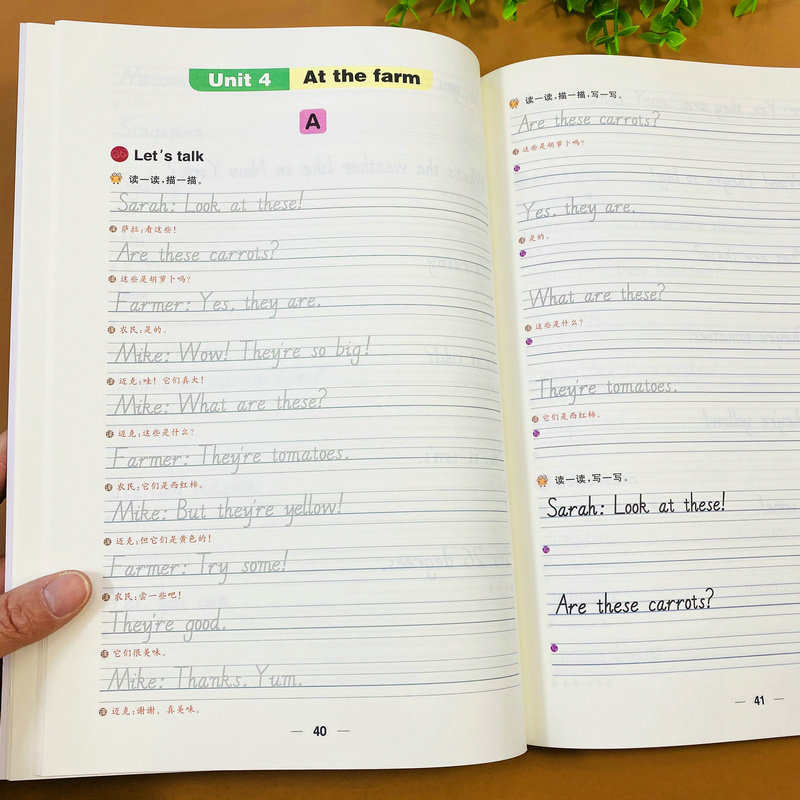 Unit 4 At the farm
A
Let's talk
读一读,描一描。
Sarah: Look at these!
萨拉:看这些!
Are these carrots?
这些是胡萝卜吗?
Farmer: Yes, they are.
农民:是的。
Mike: Wow! They're so big!
迈克:哇!它们真大!
Mike: What are these?
迈克:这些是什么?
Farmer: They're tomatoes.
农民:它们是西红柿。
Mike: But they're yellow!
迈克:但它们是黄色的!
Farmer: Try some!
农民:尝一些吧!
They're good.
它们很美味。
Mike: Thanks. Yum.
迈克:谢谢。真美味。
40
读一读,描一描,写一写。
Are these carrots?
这些是胡萝卜吗?
Yes, they are.
是的。
What are these?
这些是什么?
They're tomatoes.
它们是西红柿。
读一读,写一写。
Sarah: Look at these!
Are these carrots?
41